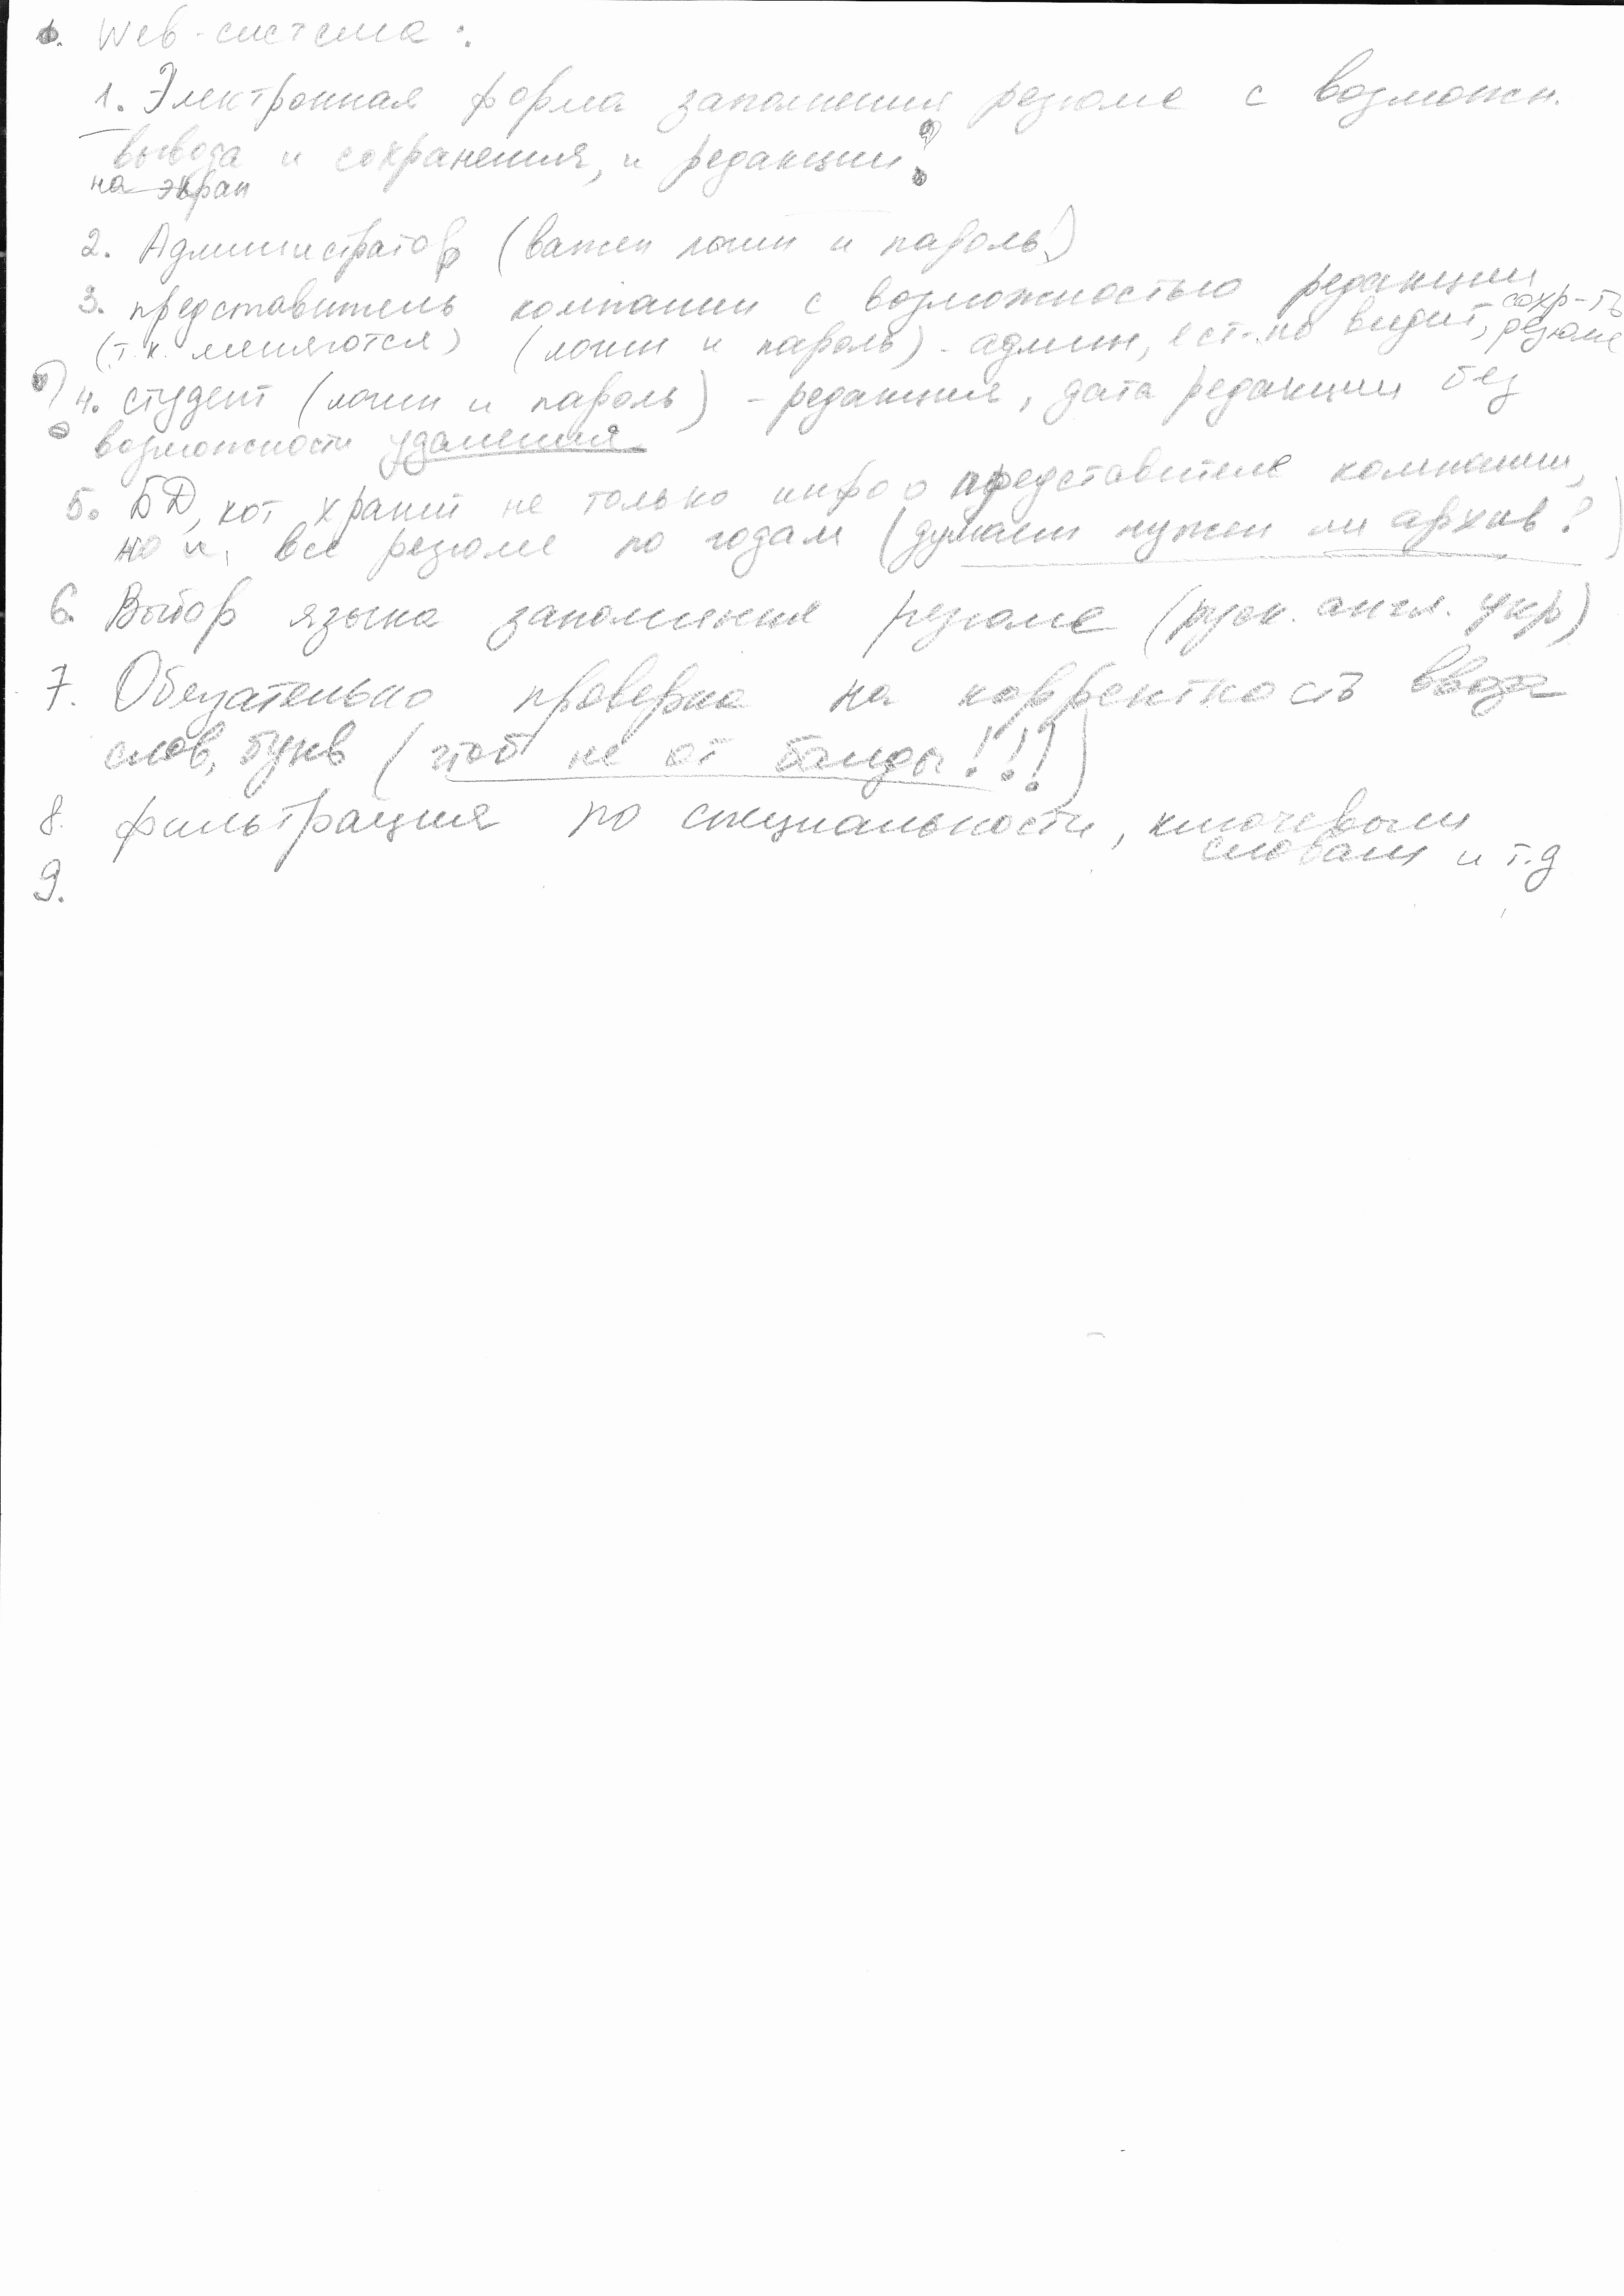 Web-система:
1. Электронная форма заполнения резюме с возможн.
вывода и сохранения, и редакции
на экран
2. Администратор (важен логин и пароль!)
3. представитель компании с возможностью редакции
(т.к. меняются) (логин и пароль) - админ, ест-но видит, сохр-ть
резюме
4. студент (логин и пароль) - редакция, дата редакции без
возможности удаления
5. БД, кот хранит не только инфо о представителе компании,
но и, все резюме по годам (думаем нужен ли архив?)
6. Выбор языка заполнения резюме (руск. англ. укр)
7. Обязательно проверка на корректность ввода
слов, букв (чтоб не от балды!!!)
8. фильтрация по специальности, ключевым
словам и т.д
9.